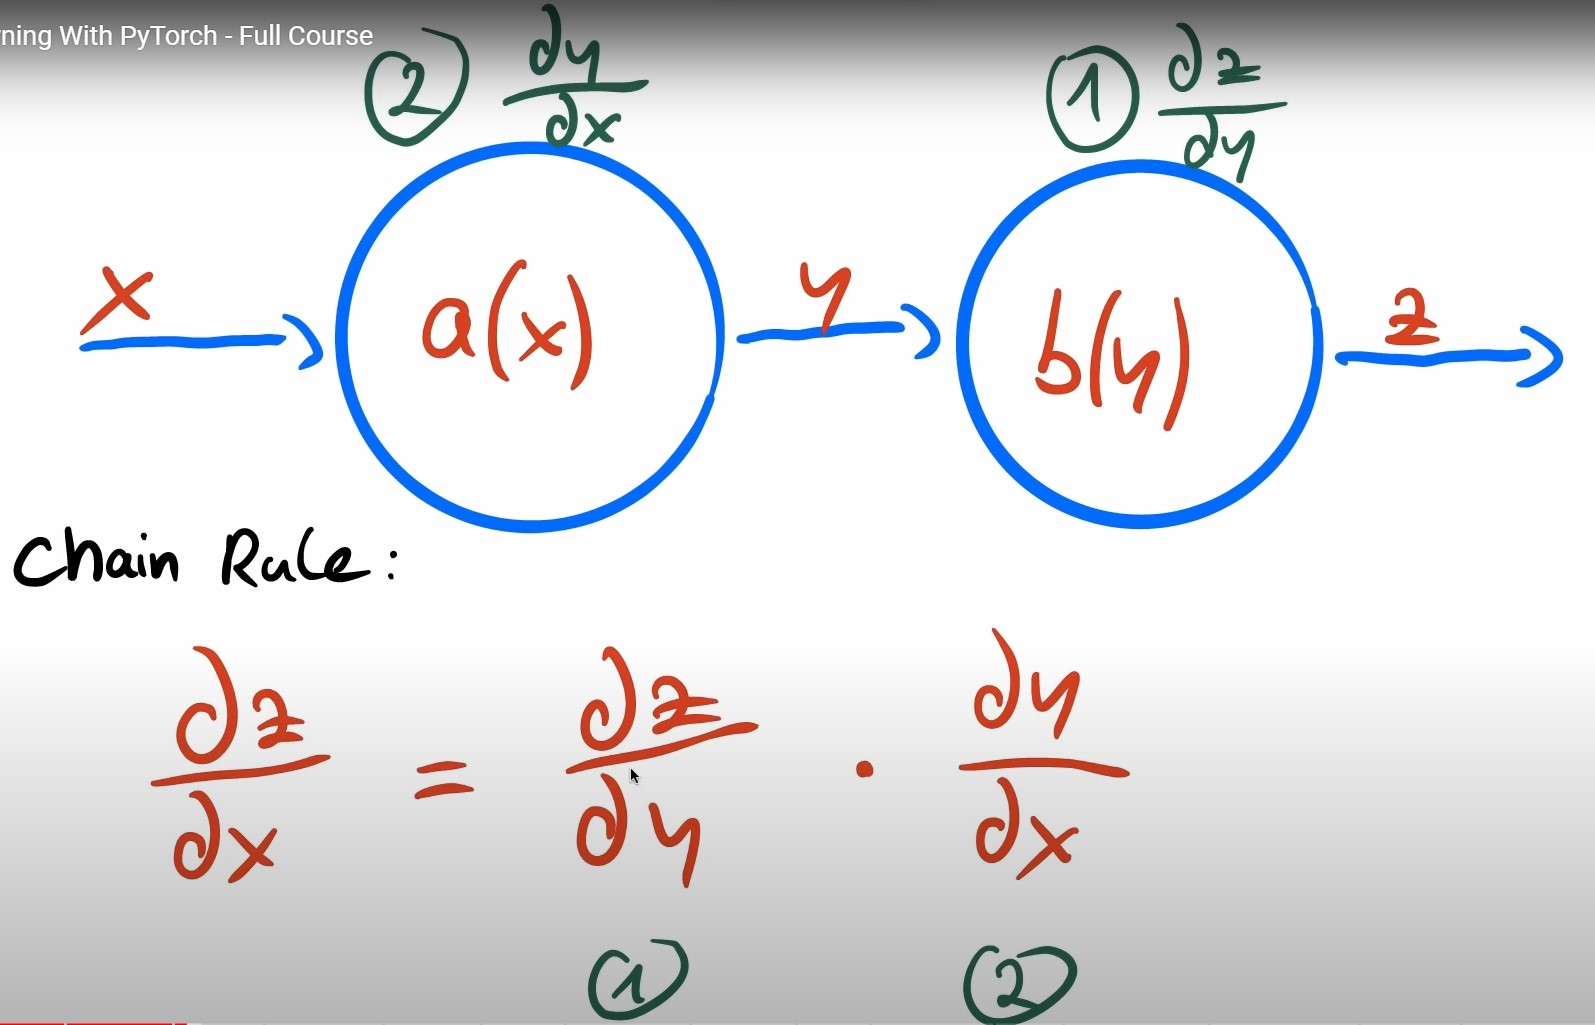 rning With PyTorch - Full Course
② ∂y/∂x
① ∂z/∂y
x
a(x)
y
b(y)
z
Chain Rule:
∂z/∂x = ∂z/∂y · ∂y/∂x
① ②